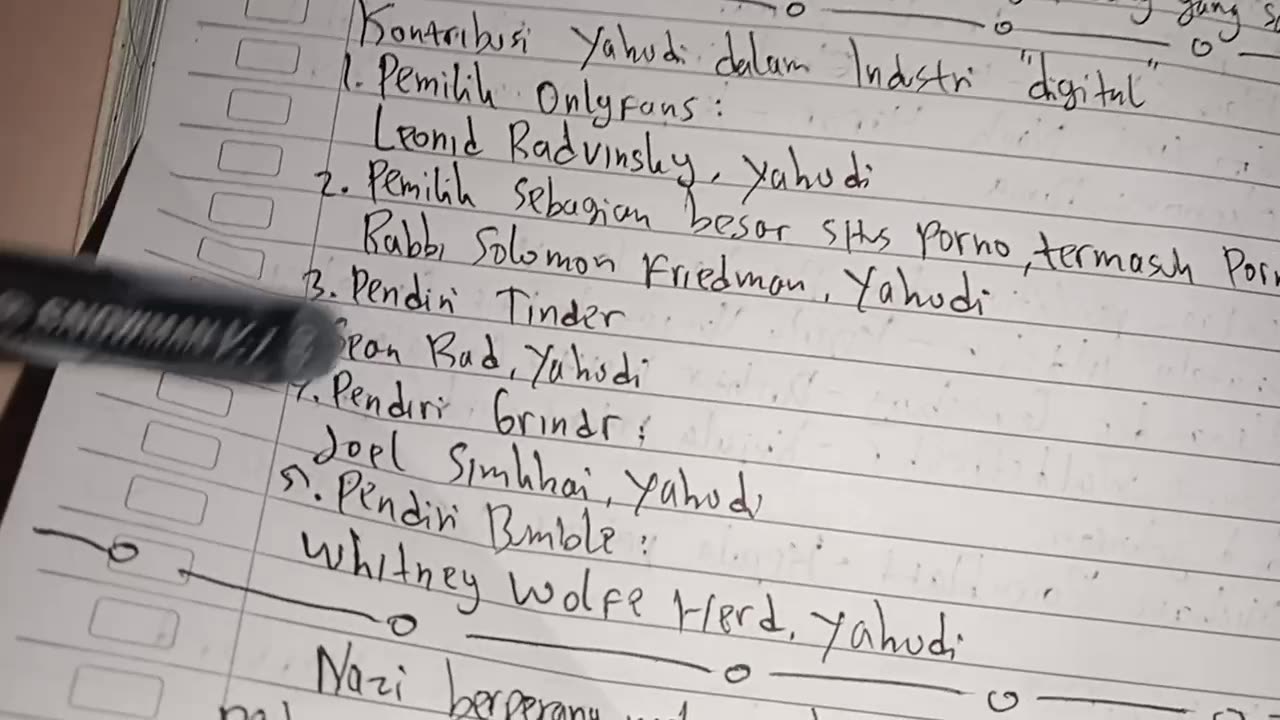 yang s
Kontribusi Yahudi dalam Industri "digital"
1. Pemilik Onlyfans:
Leonid Radvinsky, Yahudi
2. Pemilik sebagian besar situs porno, termasuk Porn
Rabbi Solomon Friedman, Yahudi
3. Pendiri Tinder
Sean Rad, Yahudi
4. Pendiri Grindr:
Joel Simkhai, Yahudi
5. Pendiri Bumble:
Whitney Wolfe Herd, Yahudi
Nazi berperang